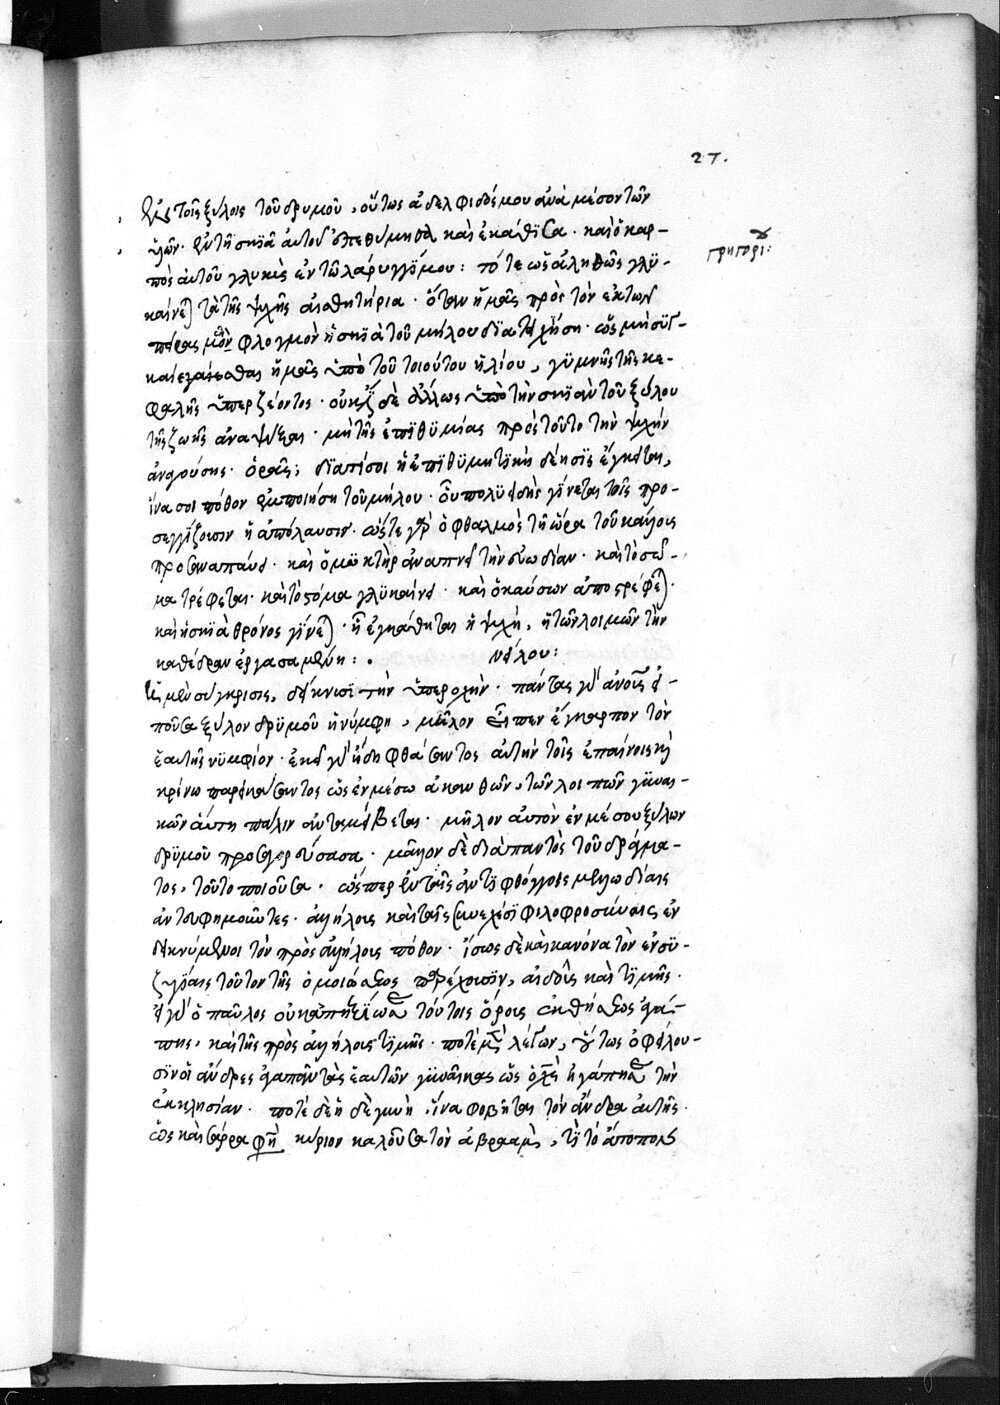 27.
ἐν τοῖς ξύλοις τοῦ δρυμοῦ, οὕτως ἀδελφιδός μου ἀνὰ μέσον τῶν
υἱῶν. ἐν τῆ σκιᾶ αὐτοῦ ἐπεθύμησα καὶ ἐκάθισα. καὶ ὁ καρ-
γρηγορίου:
πὸς αὐτοῦ γλυκὺς ἐν τῶ λάρυγγί μου: τότε ὡς ἀληθῶς γλυ-
καίνεται τὰ τῆς ψυχῆς αἰσθητήρια. ὅταν ἡμᾶς πρὸς τὸν ἐκ τῶν
φλογμὸν ἡ σκιὰ τοῦ μήλου διατειχίση. ὡς μὴ συγ-
καίεσθαι ἡμᾶς ὑπὸ τοῦ τοιούτου ἡλίου, γυμνῆς τῆς κε-
φαλῆς ὑπερζέοντος. οὐκ ἔστι δὲ ἄλλως ὑπὸ τὴν σκιὰν τοῦ ξύλου
τῆς ζωῆς ἀναψύξαι. μὴ τῆς ἐπιθυμίας πρὸς τοῦτο τὴν ψυχὴν
ἀναγούσης. ὁρᾶς; διατί σοι ἡ ἐπιθυμητικὴ δύησις ἔγκειται,
ἵνα σοι πόθον ἐμποιήση τοῦ μήλου. οὗ πολυειδὴς γίνεται τοῖς προ-
σεγγίζουσιν ἡ ἀπόλαυσις. ὥστε γὰρ ὀφθαλμὸς τῆ ὥρα τοῦ κάλλους
προσαναπαύει. καὶ ὁ μυκτὴρ ἀναπνεῖ τὴν εὐωδίαν. καὶ τὸ σῶ-
μα τρέφεται. καὶ τὸ στόμα γλυκαίνει. καὶ ὁ καύσων ἀποστρέφεται.
καὶ ἡ σκιὰ θρόνος γίνεται. ἧ ἐγκάθηται ἡ ψυχή, ἡ τῶν λοιμῶν τὴν
καθέδραν ἐργασαμένη:. νείλου:
ἡ μὲν σύγκρισις, δείκνυσι τὴν ὑπεροχὴν. πάντας γὰρ ἀνοὺς εἰ-
ποῦσα ξύλον δρυμοῦ ἡ νύμφη, μῆλον εἶπεν ἔγκαρπον τὸν
ἑαυτῆς νυμφίον. ἐκεῖ γὰρ ἤδη φθάσαντος αὐτὴν τοῖς ἐπαίνοις καὶ
κρίνω παρεικάσαντος ὡς ἐν μέσω ἀκανθῶν, τῶν λοιπῶν γυναι-
κῶν αὕτη πάλιν ἀνταμείβεται. μῆλον αὐτὸν ἐν μέσου ξύλων
δρυμοῦ προσαγορεύσασα. μᾶλλον δὲ διὰ παντὸς τοῦ δράμα-
τος, τοῦτο ποιοῦσα. ὥσπερ ἐν ταῖς ἀντιφθόγγοις μελωδίαις
ἀντευφημοῦντες. ἀλλήλοις καὶ ταῖς συνεχέσι φιλοφροσύναις ἐν-
δεικνύμενοι τὸν πρὸς ἀλλήλους πόθον. ἴσως δὲ καὶ κανόνα τὸν ἐν συ-
ζυγίαις τοῦτον τῆς ὁμοιώσεως παρέχουσιν, αἰδοῦς καὶ τιμῆς.
τούτοις ὅροις ἐκθήσεως ἀγά-
πης, καὶ τῆς πρὸς ἀλλήλους τιμῆς. ποτὲ μὲν λέγων, οὕτως ὀφείλου-
σιν οἱ ἄνδρες ἀγαπᾶν τὰς ἑαυτῶν γυναῖκας ὡς ὁ χριστὸς ἠγάπησε τὴν
ἐκκλησίαν. ποτὲ δὲ ἡ δὲ γυνὴ, ἵνα φοβῆται τὸν ἄνδρα αὐτῆς.
ὡς καὶ σάρρα φησὶ κύριον καλοῦσα τὸν ἀβραὰμ,